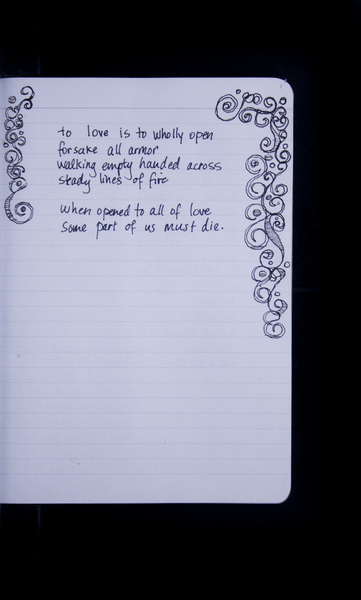 to love is to wholly open
forsake all armor
walking empty handed across
steady lines of fire
when opened to all of love
some part of us must die.